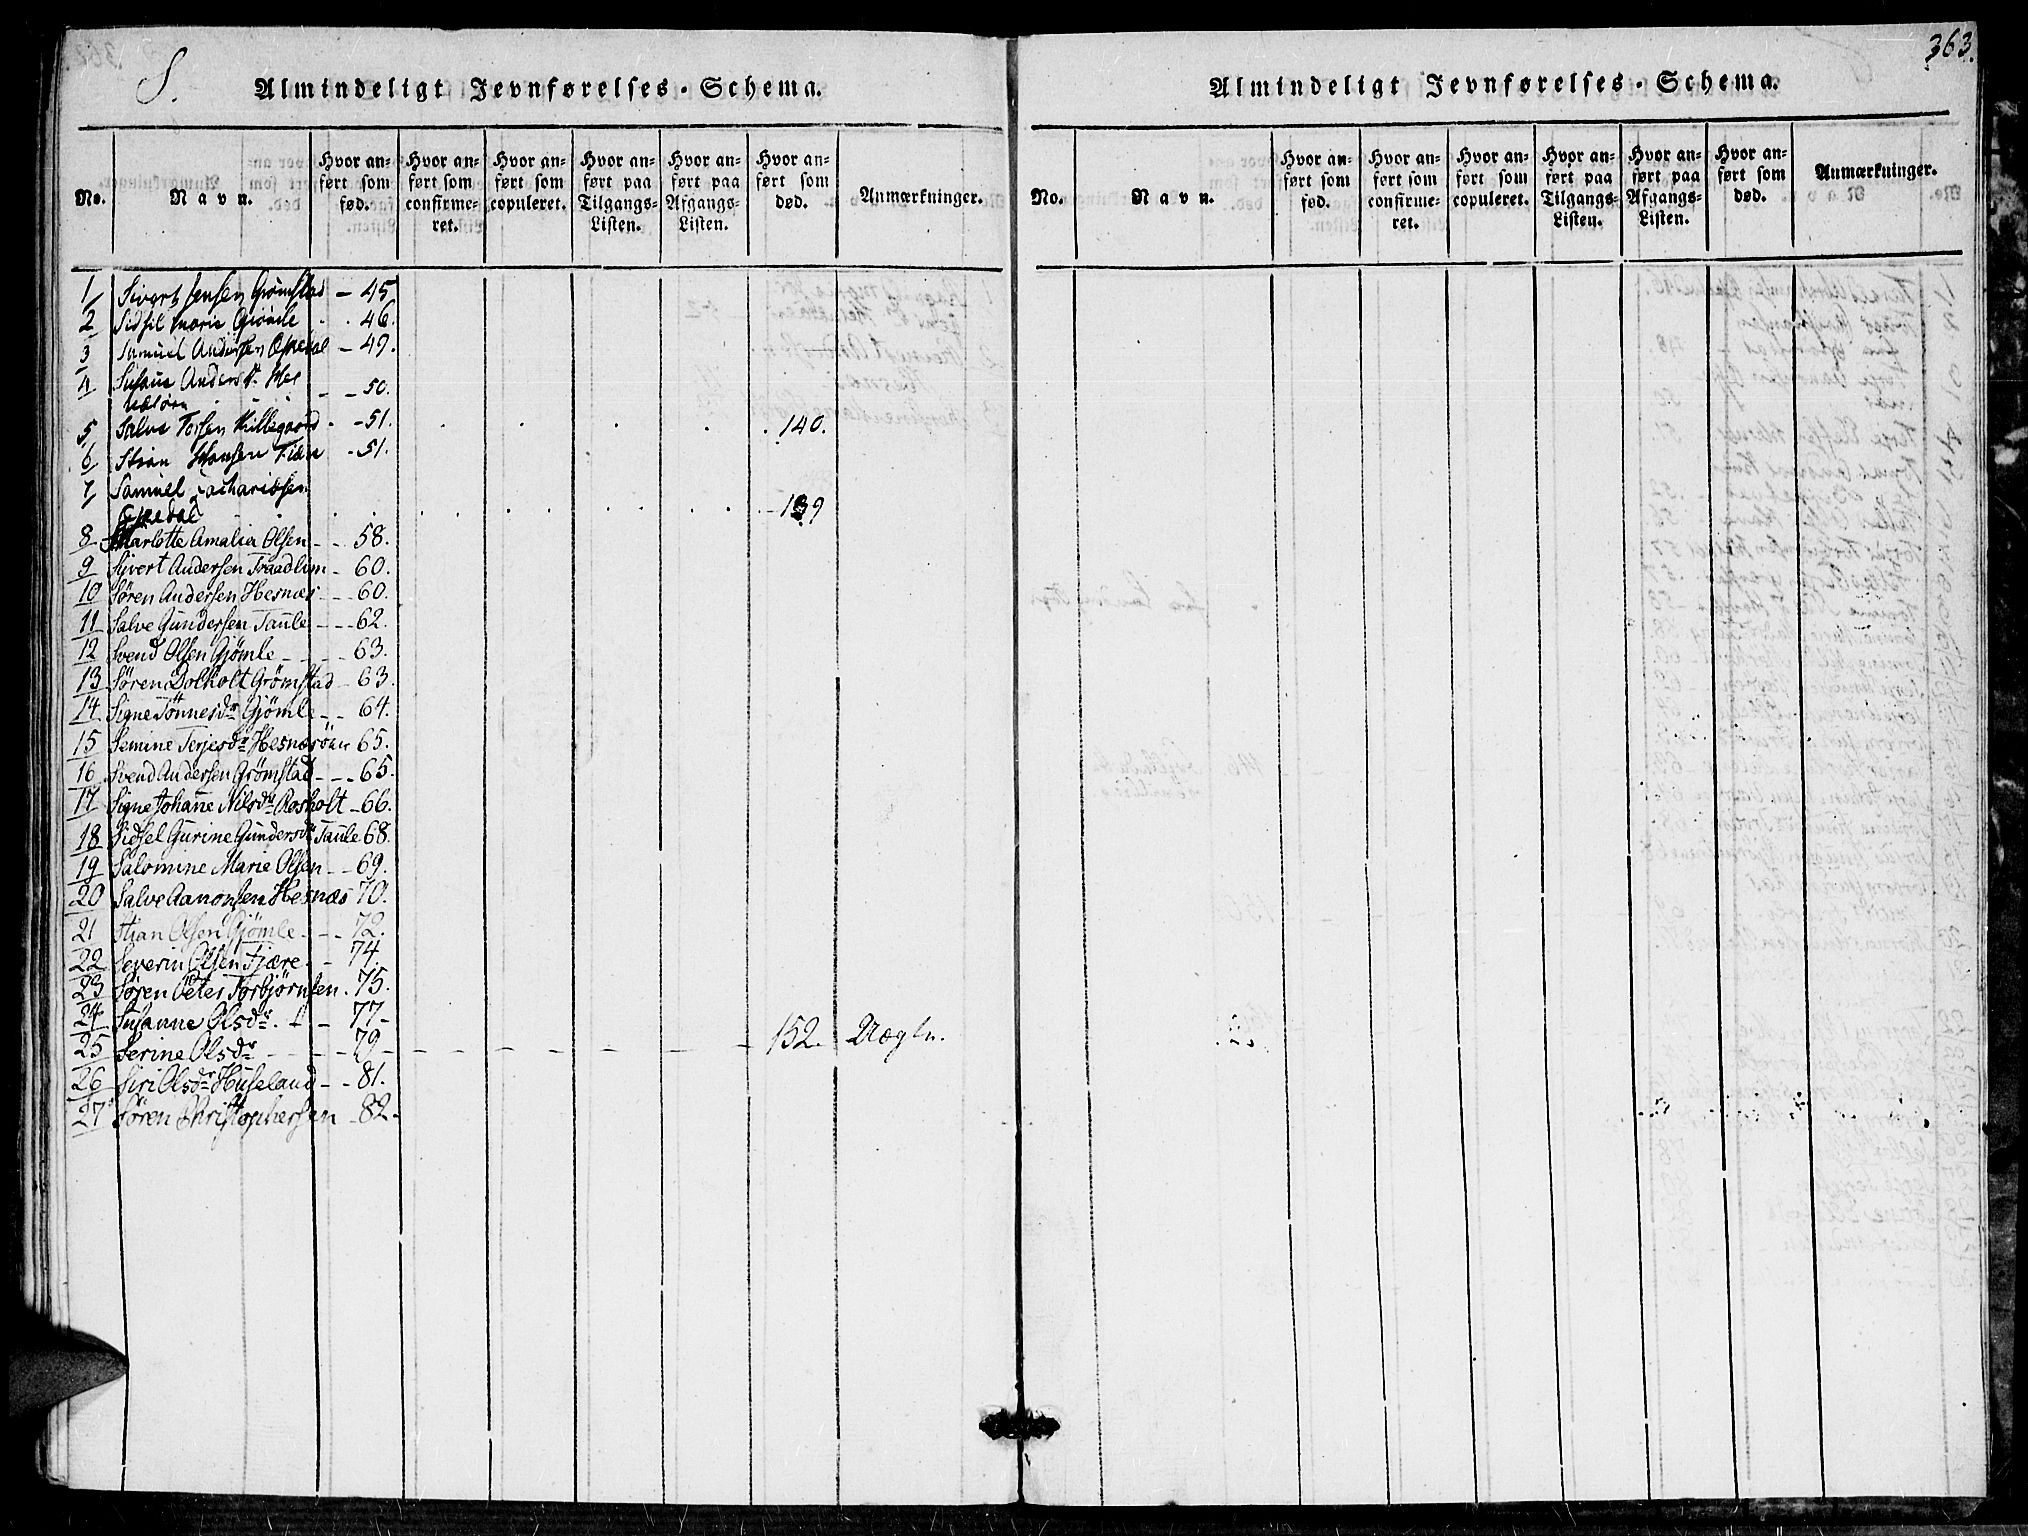 S.
Almindeligt Jevnførelses-Schema.
No.
Navn.
Hvor an-
ført som
fød.
Hvor an-
ført som
confirme-
ret.
Hvor an-
ført som
copuleret.
Hvor an-
ført paa
Tilgangs-
Listen.
Hvor an-
ført paa
Afgangs-
Listen.
Hvor an-
ført som
død.
Anmærkninger.
1 Sivert Jensen Grømstad - 45
2 Sidsil Marie Gjömle . . 46.
3 Samuel Andersen Opedal - 49.
4 Susane Andersdr. Hes
næsöen - - 50.
5 Salve Torsen Killegaard - 51. . . . . . 140.
6 Stian Hansen Fiære - 51.
7 Samuel Zachariasen
Opedal . . . . . . . - 139
8 Scharlotte Amalia Olsen - - 58.
9 Sivert Andersen Traadlim - 60.
10 Sören Andersen Hesnæs - - 60.
11 Salve Gundersen Taule - - - 62.
12 Svend Olsen Gjömle - - - - 63.
13 Sören Dolholt Grömstad - 63.
14 Signe Tönnesdr. Gjömle - - 64.
15 Semine Terjesdr. Hesnæsöen 65.
16 Svend Andersen Grömstad - - - 65.
17 Signe Johane Nilsdr. Rosholt - 66.
18 Sidsel Gurine Gundersdr. Taule 68.
19 Salomine Marie Olsen - - 69.
20 Salve Aanonsen Hesnæs - 70.
21 Stian Olsen Gjömle - - - 72.
22 Severin Olsen Fjære - - 74.
23 Sören Peter Torbjörnsen . 75.
24 Susanne Olsdr. . - - 77 -
25 Serine Olsdr. - - - - 79 - - - - - - 152. Uægte.
26 Siri Olsdr. Huseland - - 81.
27 Sören Christophersen - 82 -
363.
Almindeligt Jevnførelses-Schema.
No.
Navn.
Hvor an-
ført som
fød.
Hvor an-
ført som
confirme-
ret.
Hvor an-
ført som
copuleret.
Hvor an-
ført paa
Tilgangs-
Listen.
Hvor an-
ført paa
Afgangs-
Listen.
Hvor an-
ført som
død.
Anmærkninger.